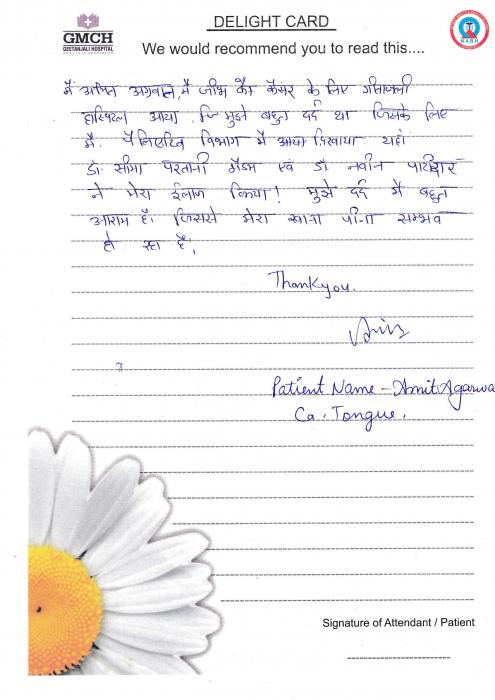 GMCH
GEETANJALI HOSPITAL
DELIGHT CARD
NABH
We would recommend you to read this....
मैं अमित अग्रवाल, मैं जीभ के कैंसर के लिए गीतांजली
हास्पिटल आया मुझे बहुत दर्द था जिसके लिए
मैं पेलिएटिव विभाग में आया दिखाया यहाँ
डॉ. सीमा परतानी मैडम एवं डॉ नवीन पाटीदार
ने मेरा ईलाज किया! मुझे दर्द में बहुत
आराम है। जिससे मेरा खाना पीना सम्भव
हो रहा है।
Thankyou.
Patient Name - Amit Agarwa
Ca. Tongue.
Signature of Attendant / Patient